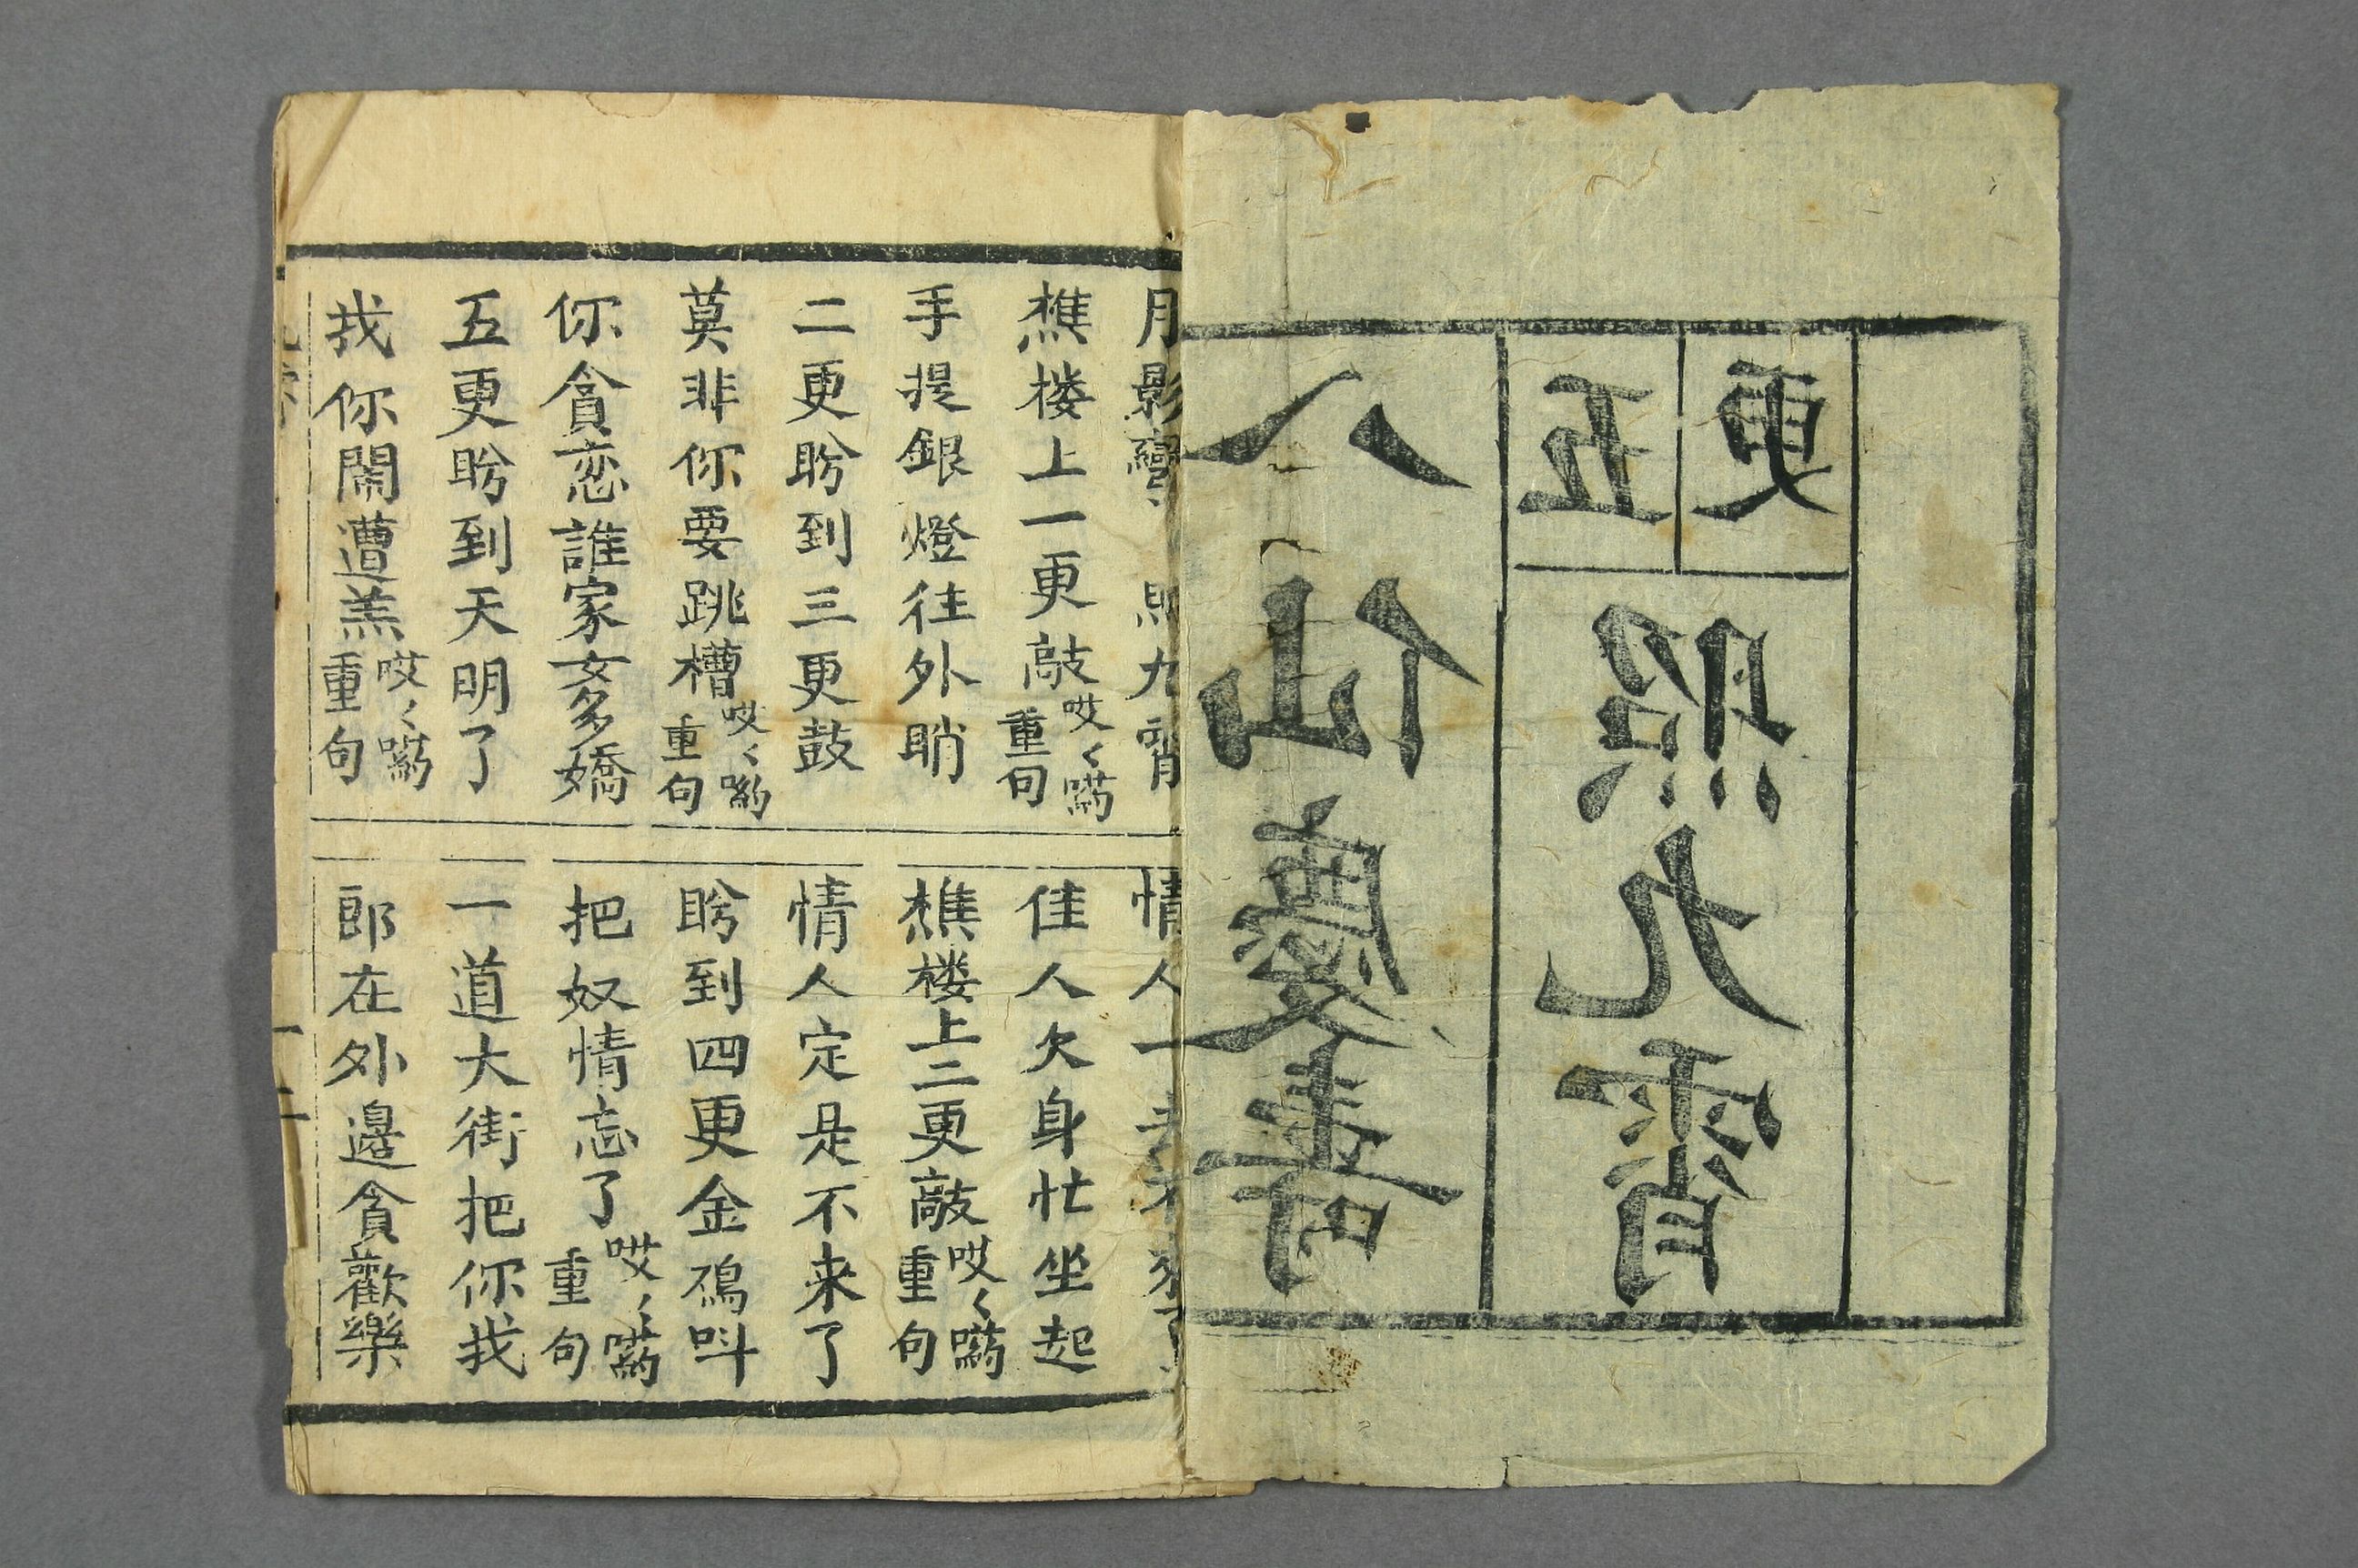 八仙慶壽
五更
照九霄
月影彎〻照九霄
情人一去不來了
樵楼上一更敲哎〻喲重句
佳人欠身忙坐起
手提銀燈往外睄
樵楼上二更敲哎〻喲重句
二更盼到三更鼓
情人定是不来了
莫非你要跳槽哎〻喲重句
盼到四更金鴉呌
你貪恋誰家女多嬌
把奴情忘了哎〻喲重句
五更盼到天明了
一道大街把你找
找你鬧遭羔哎〻喲重句
郎在外邊貪歡樂